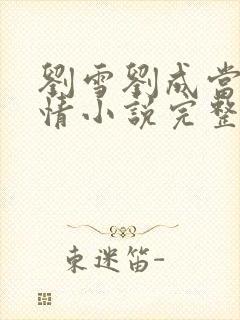 劉雪劉成當
情小説完整
東迷笛-